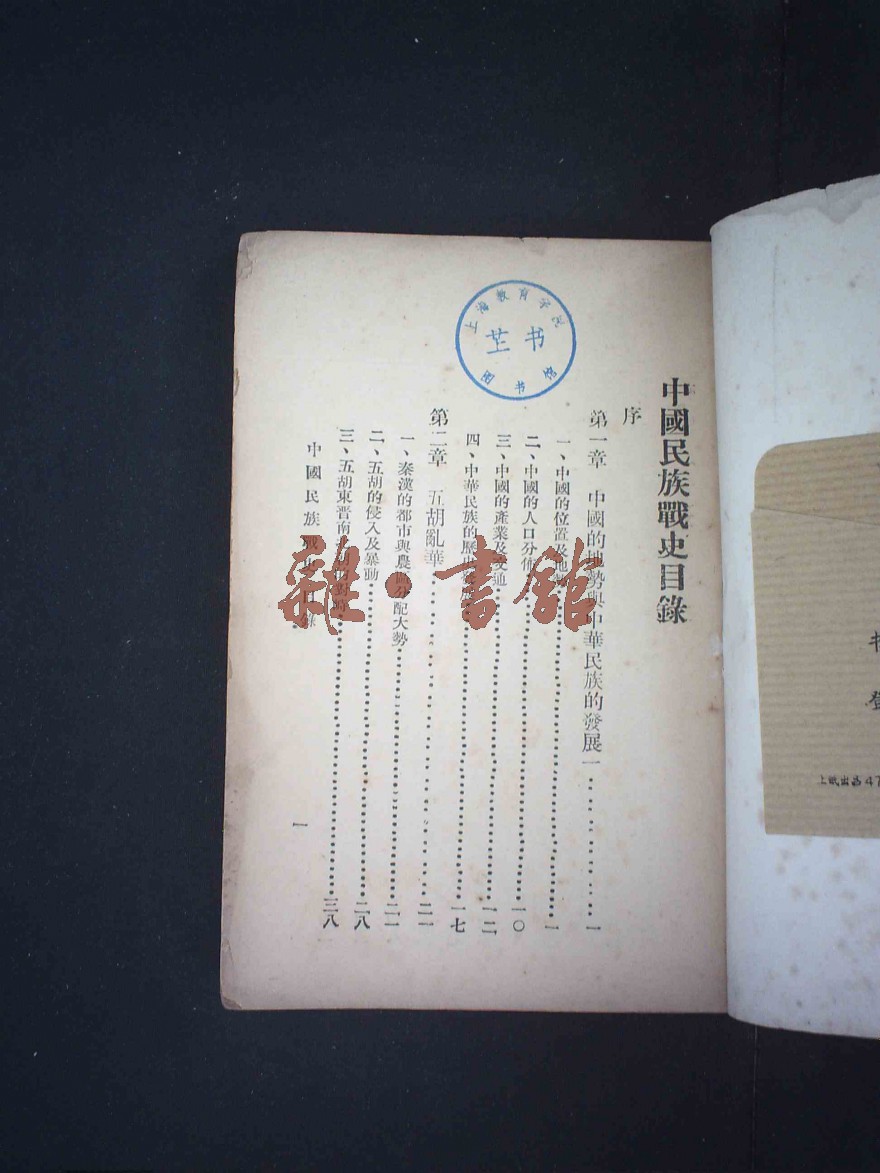 中國民族戰史目錄
序
第一章 中國的地勢與中華民族的發展一………一
一、中國的位置及地勢………一
二、中國的人口分佈………一〇
三、中國的產業及交通………一二
四、中華民族的歷史發展………一七
第二章 五胡亂華………二一
一、秦漢的都市與農區分配大勢………二一
二、五胡的侵入及暴動………二八
三、五胡東晉南北朝的對峙………三八
中國民族戰史目錄
一
上海教育学院
书
图书馆
雜·書館